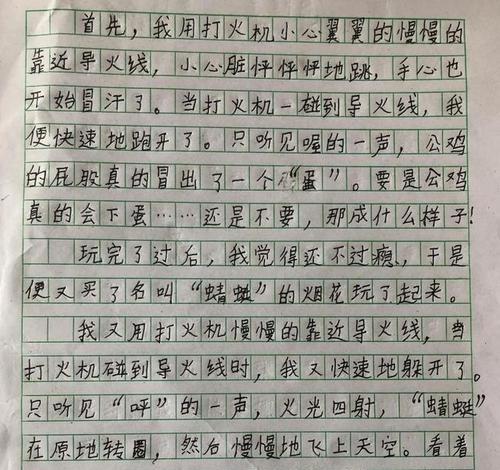 首先，我用打火机小心翼翼的慢慢的
靠近导火线，小心脏怦怦怦地跳，手心也
开始冒汗了。当打火机一碰到导火线，我
便快速地跑开了。只听见喔的一声，公鸡
的屁股真的冒出了一个“蛋”。要是公鸡
真的会下蛋……还是不要，那成什么样子！
玩完了过后，我觉得还不过瘾，于是
便又买了名叫“蜻蜓”的烟花玩了起来。
我又用打火机慢慢的靠近导火线，当
打火机碰到导火线时，我又快速地躲开了。
只听见“呼”的一声，火光四射，“蜻蜓”
在原地转圈，然后慢慢地飞上天空。看着